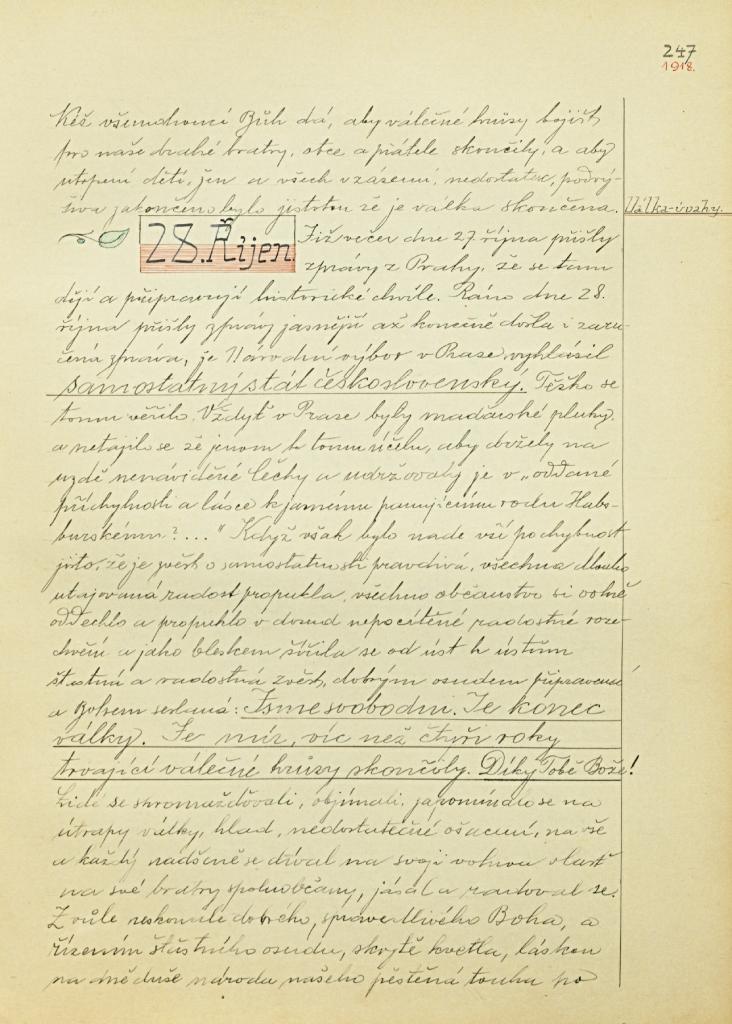 247
1918.
Kéž všemohoucí Bůh dá, aby válečné hrůzy bojišť,
pro naše drahé bratry, otce a přátele skončily, a aby
utrpení dětí, žen a všech v zázemí, nedostatek, podvý-
živa zakončeno bylo jistotou že je válka skončena.
Válka-úvahy.
28. Říjen.
Již večer dne 27. října přišly
zprávy z Prahy, že se tam
dějí a připravují historické chvíle. Ráno dne 28.
října přišly zprávy jasnější až konečně došla i zaru-
čená zpráva, že Národní výbor v Praze vyhlásil
samostatný stát československý. Těžko se
tomu věřilo. Vždyť v Praze byly maďarské pluky,
a netajilo se že jenom k tomu účelu, aby držely na
uzdě nenáviděné Čechy a udržovaly je v "oddané
příchylnosti a lásce k jasnému panujícímu rodu Habs-
burskému?...." Když však bylo nade vší pochybnost
jisto, že je zvěst o samostatnosti pravdivá, všechna dlouho
utajovaná radost propukla, všechno občanstvo si volně
oddechlo a propuklo v dosud nepocítěné radostné roze-
chvění a jako bleskem šířila se od úst k ústům
šťastná a radostná zvěst, dobrým osudem připravená
a Bohem seslaná: Jsme svobodni. Je konec
války. Je mír, víc než čtyři roky
trvající válečné hrůzy skončily. Díky Tobě Bože!
Lidé se shromažďovali, objímali, zapomínalo se na
útrapy války, hlad, nedostatečné ošacení, na vše
a každý nadšeně se díval na svoji volnou vlasť
na své bratry spoluobčany, jásal a radoval se.
Z vůle neskonale dobrého, spravedlivého Boha, a
řízením šťastného osudu, skrytě kvetla, láskou
na dně duše národa našeho pěstěná touha po